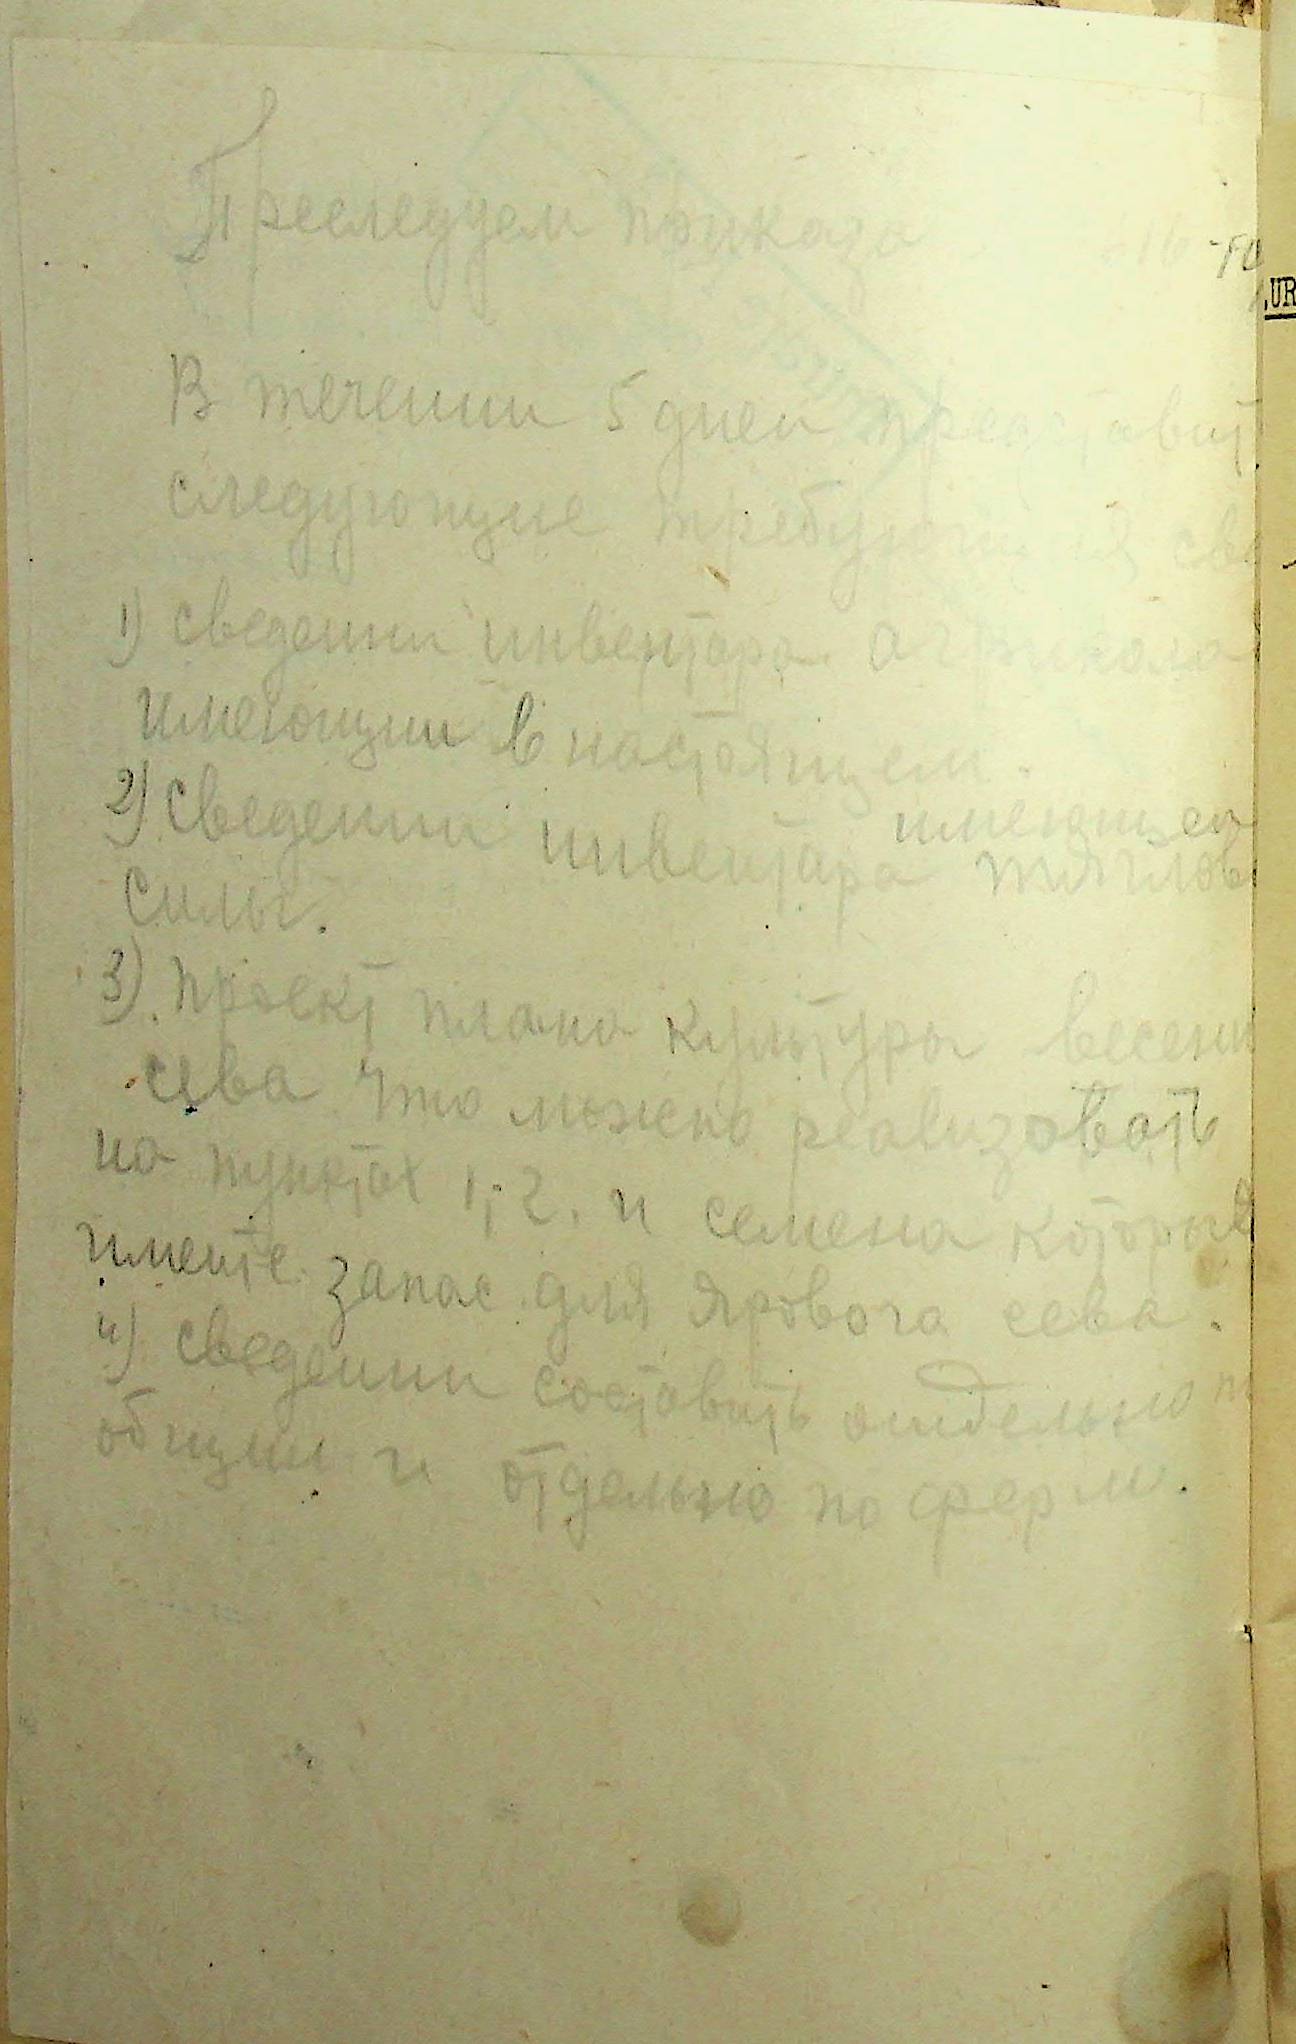 Преследуем приказа
В течении 5 дней представит
следующие требующия све
1) Сведении инвентара агрикола
имеющии в настоящем.
2) Сведении инвентара имеющей тяглов
силы.
3). Проект плана культуры весенн
сева что можно реализовать
на пунктах 1; 2. и семена которые
имеите запас для ярового сева.
4) Сведении составить отдельно
общии и отдельно по ферм.
UR